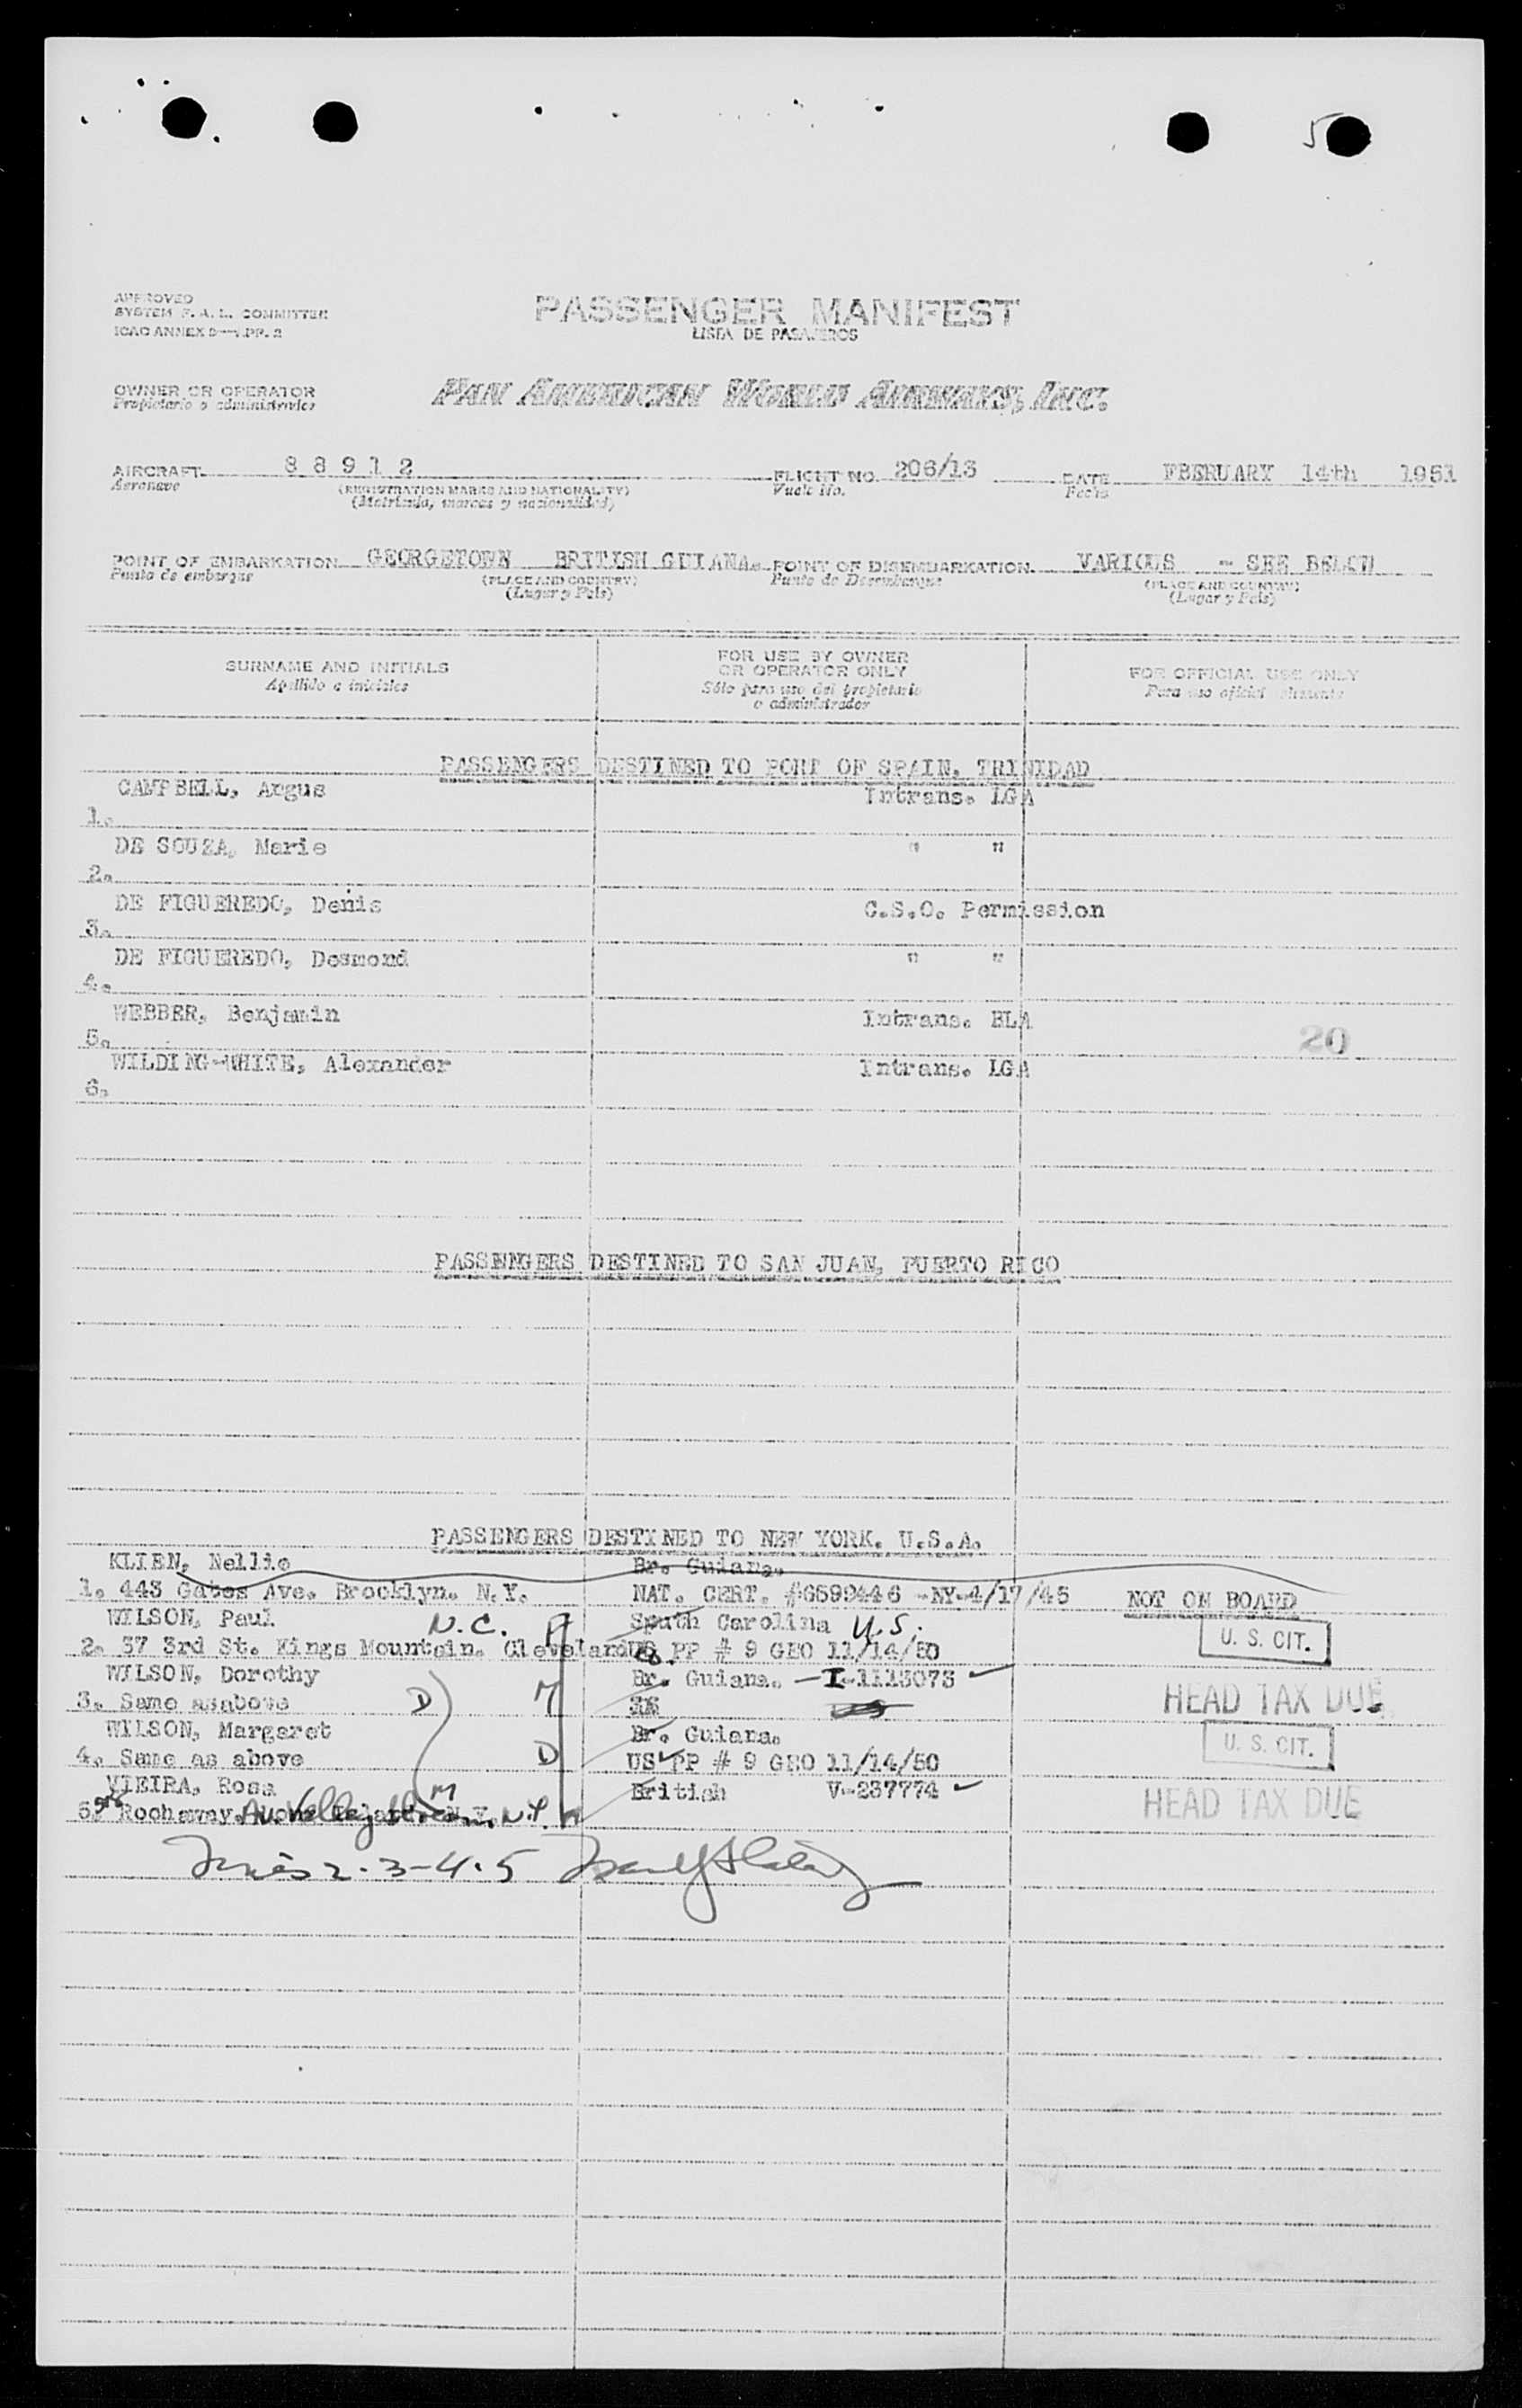 5
APPROVED
SYSTEM F. A. L. COMMITTEE
ICAO ANNEX 9—APP. 2
PASSENGER MANIFEST
LISTA DE PASAJEROS
OWNER OR OPERATOR
Propietario o administrador
PAN AMERICAN WORLD AIRWAYS, INC.
AIRCRAFT 88912 FLIGHT NO. 206/13 DATE FBERUARY 14th 1951
Aeronave (REGISTRATION MARKS AND NATIONALITY) Vuelo No. Fecha
(Matrícula, marcas y nacionalidad)
POINT OF EMBARKATION GEORGETOWN BRITISH GUIANA. POINT OF DISEMBARKATION VARIOUS - SEE BELOW
Punto de embarque (PLACE AND COUNTRY) Punto de Desembarque (PLACE AND COUNTRY)
(Lugar y País) (Lugar y País)
SURNAME AND INITIALS FOR USE BY OWNER OR OPERATOR ONLY FOR OFFICIAL USE ONLY
Apellido e iniciales Sólo para uso del propietario o administrador Para uso oficial solamente
PASSENGERS DESTINED TO PORT OF SPAIN. TRINIDAD
CAMPBELL, Angus Intrans. LGA
1.
DE SOUZA, Marie " "
2.
DE FIGUEREDO, Denis C.S.O. Permission
3.
DE FIGUEREDO, Desmond " "
4.
WEBBER, Benjamin Intrans. BLA
5. 20
WILDING-WHITE, Alexander Intrans. LGA
6.
PASSENGERS DESTINED TO SAN JUAN, PUERTO RICO
PASSENGERS DESTINED TO NEW YORK. U.S.A.
KLIEN, Nellie Br. Guiana.
1. 443 Gates Ave. Brooklyn. N.Y. NAT. CERT. #6599446 -NY-4/17/45 NOT ON BOARD
WILSON, Paul N.C. South Carolina U.S.
2. 37 3rd St. Kings Mountain. Cleveland Co. US PP # 9 GEO 11/14/50 U. S. CIT.
WILSON, Dorothy Br. Guiana. - I-1113073
3. Same as above D M HEAD TAX DUE
WILSON, Margaret Br. Guiana.
4. Same as above D US PP # 9 GEO 11/14/50 U. S. CIT.
VIEIRA, Rosa M British V-237774
5. Rochaway Av. Valley N.Y. HEAD TAX DUE
2-3-4-5